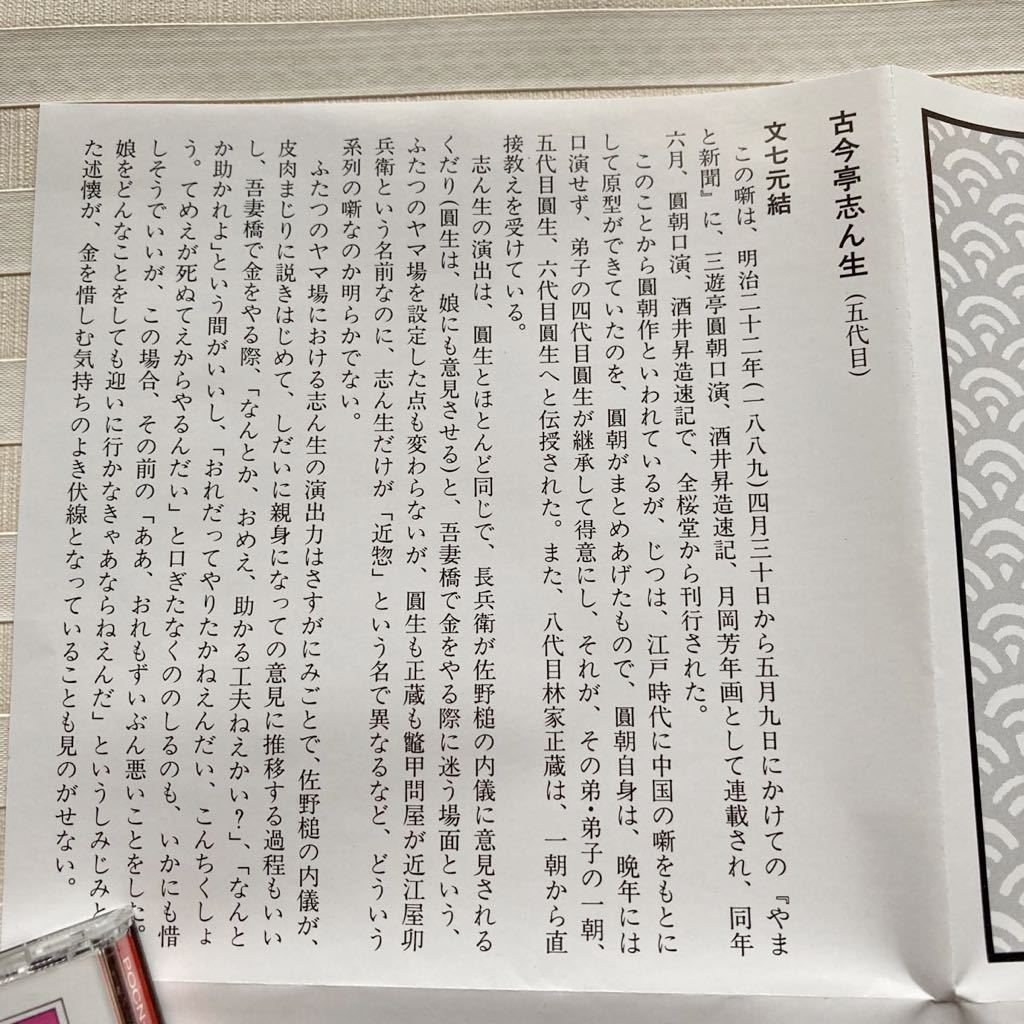 古今亭志ん生（五代目）
文七元結
この噺は、明治二十二年（一八八九）四月三十日から五月九日にかけての『やま
と新聞』に、三遊亭圓朝口演、酒井昇造速記、月岡芳年画として連載され、同年
六月、圓朝口演、酒井昇造速記で、全桜堂から刊行された。
このことから圓朝作といわれているが、じつは、江戸時代に中国の噺をもとに
して原型ができていたのを、圓朝がまとめあげたもので、圓朝自身は、晩年には
口演せず、弟子の四代目圓生が継承して得意にし、それが、その弟・弟子の一朝、
五代目圓生、六代目圓生へと伝授された。また、八代目林家正蔵は、一朝から直
接教えを受けている。
志ん生の演出は、圓生とほとんど同じで、長兵衛が佐野槌の内儀に意見される
くだり（圓生は、娘にも意見させる）と、吾妻橋で金をやる際に迷う場面という、
ふたつのヤマ場を設定した点も変わらないが、圓生も正蔵も鼈甲問屋が近江屋卯
兵衛という名前なのに、志ん生だけが「近惣」という名で異なるなど、どういう
系列の噺なのか明らかでない。
ふたつのヤマ場における志ん生の演出力はさすがにみごとで、佐野槌の内儀が、
皮肉まじりに説きはじめて、しだいに親身になっての意見に推移する過程もいい
し、吾妻橋で金をやる際、「なんとか、おめえ、助かる工夫ねえかい？」、「なんと
か助かれよ」という間がいいし、「おれだってやりたかねえんだい、こんちくしょ
う。てめえが死ぬてえからやるんだい」と口ぎたなくののしるのも、いかにも惜
しそうでいいが、この場合、その前の「ああ、おれもずいぶん悪いことをした。
娘をどんなことをしても迎いに行かなきゃあならねえんだ」というしみじみと
た述懐が、金を惜しむ気持ちのよき伏線となっていることも見のがせない。
POCN